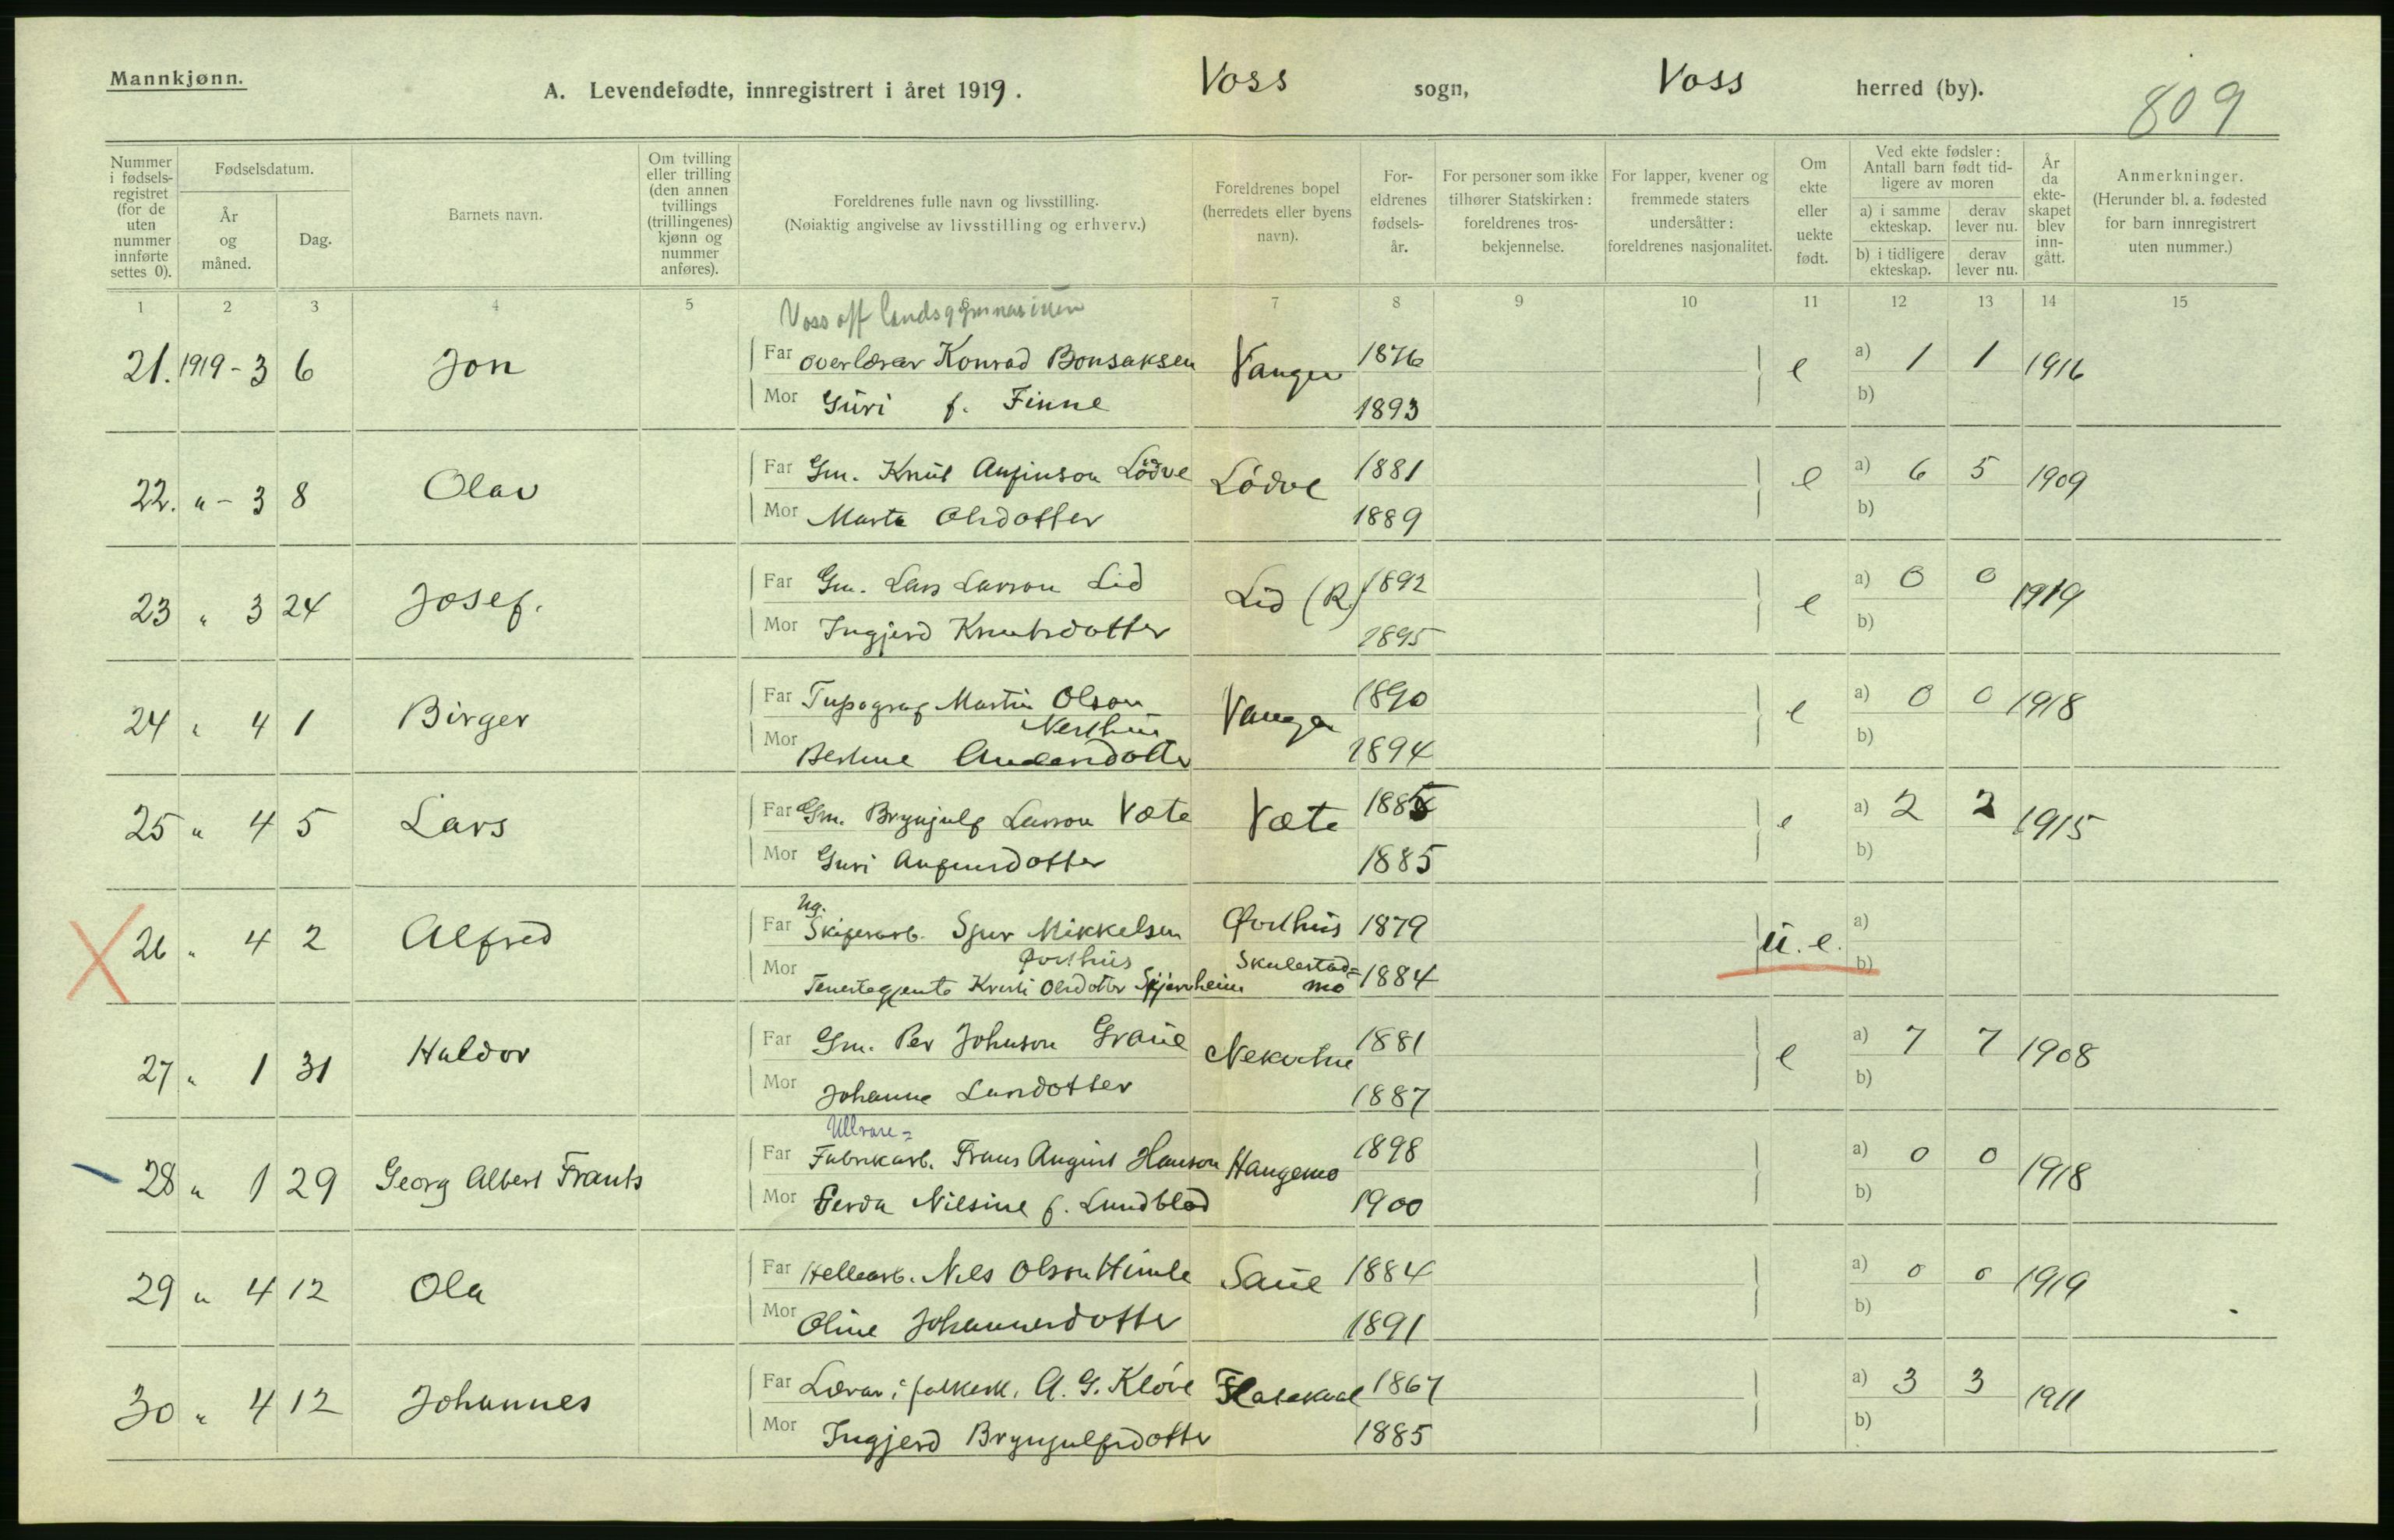 Mannkjønn.
A. Levendefødte, innregistrert i året 1919. Voss sogn, Voss herred (by).
809
Nummer i fødselsregistret (for de uten nummer innførte settes 0).
Fødselsdatum.
År og måned.
Dag.
Barnets navn.
Om tvilling eller trilling (den annen tvillings (trillingenes) kjønn og nummer anføres).
Foreldrenes fulle navn og livsstilling.
(Nøiaktig angivelse av livsstilling og erhverv.)
Foreldrenes bopel (herredets eller byens navn).
For-eldrenes fødsels-år.
For personer som ikke tilhører Statskirken: foreldrenes tros-bekjennelse.
For lapper, kvener og fremmede staters undersåtter: foreldrenes nasjonalitet.
Om ekte eller uekte født.
Ved ekte fødsler: Antall barn født tid-ligere av moren
a) i samme ekteskap. derav lever nu.
b) i tidligere ekteskap. derav lever nu.
År da ekte-skapet blev inn-gått.
Anmerkninger.
(Herunder bl. a. fødested for barn innregistrert uten nummer.)
1 2 3 4 5 6 7 8 9 10 11 12 13 14 15
Voss off landsgymnasium
21. 1919 - 3 6 Jon Far overlærar Konrad Bonsaksen Vangen 1876 e a) 1 1 1916
Mor Guri f. Finne 1893 b)
22. " - 3 8 Olav Far Gm. Knut Anfinson Lödve Lödve 1881 e a) 6 5 1909
Mor Marta Olsdotter 1889 b)
23 " 3 24 Josef. Far Gm. Lars Larson Lid Lid (R) 1892 e a) 0 0 1919
Mor Ingjerd Knutsdotter 1895 b)
24 " 4 1 Birger Far Typograf Martin Olson Vangen 1890 e a) 0 0 1918
Mor Andersdotter 1894 b)
25 " 4 5 Lars Far Gm. Brynjulf Larson Væte Væte 1885 e a) 2 2 1915
Mor Guri Anfinsdotter 1885 b)
Ug.
26 " 4 2 Alfred Far Skiferarb. Sjur Mikkelsen 1879 u. e. a)
Skulestad=
Mor Tenestegjenta Kristi Olsdotter mo 1884 b)
27 " 1 31 Haldor Far Gm. Per Johnson Graue 1881 e a) 7 7 1908
Mor Johanne Larsdotter 1887 b)
Ullvare=
28 " 1 29 Georg Albert Frants Far Fabrikarb. Frans August Hanson Haugamo 1898 a) 0 0 1918
Mor Gerda Nilsine f. Lundblad 1900 b)
29 " 4 12 Ola Far Hellearb. Nils Olson Himle Saue 1884 a) 0 0 1919
Mor Oline Johannesdotter 1891 b)
30 " 4 12 Johannes Far Lærar i folkesk. A. G. Klöve 1867 a) 3 3 1911
Mor Ingjerd Brynjulfsdotter 1885 b)